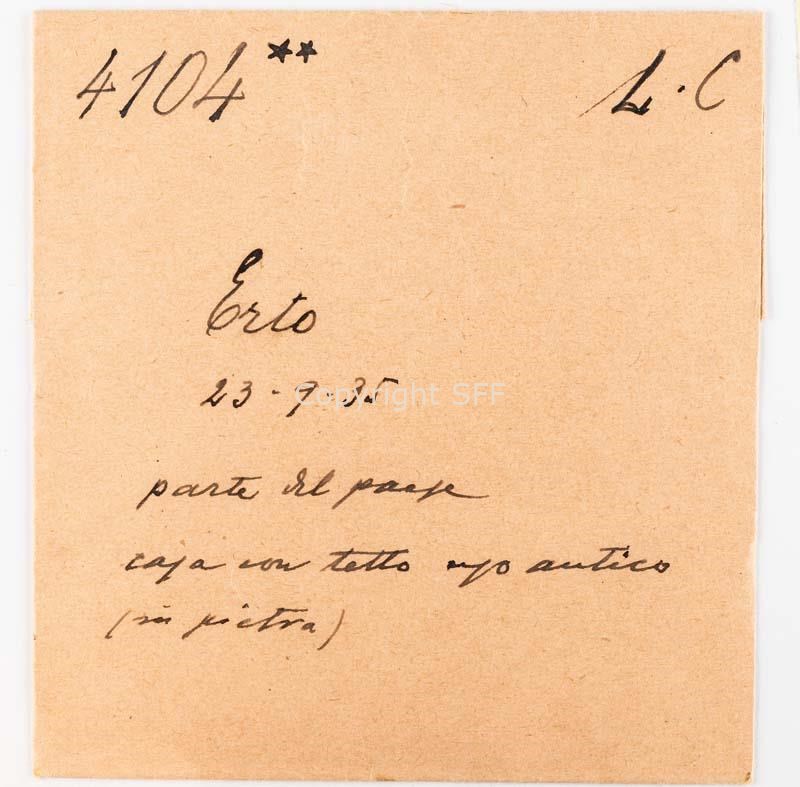 4104** L. C
Erto
23-9-35
Copyright SFF
parte del paese
casa con tetto uso antico
(in pietra)